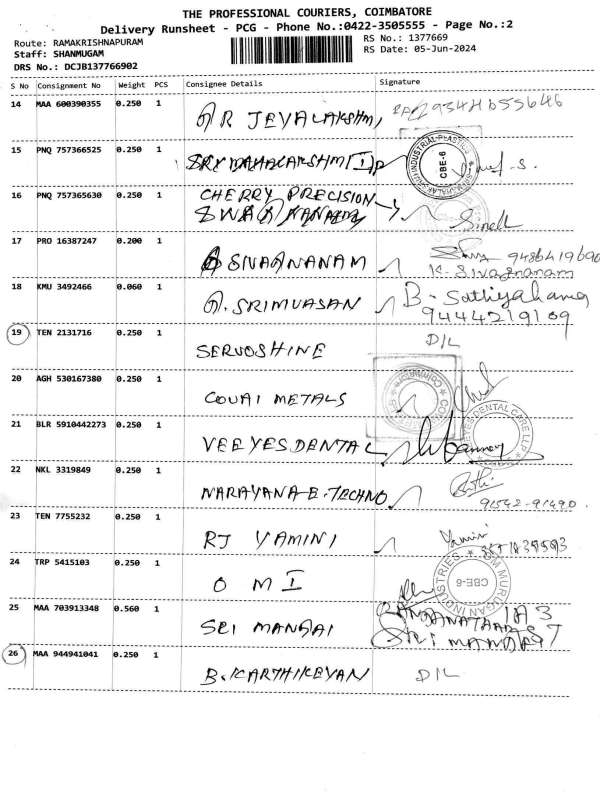 THE PROFESSIONAL COURIERS, COIMBATORE
Delivery Runsheet - PCG - Phone No.:0422-3505555 - Page No.:2
Route: RAMAKRISHNAPURAM
RS No.: 1377669
Staff: SHANMUGAM
RS Date: 05-Jun-2024
DRS No.: DCJB137766902
S No Consignment No Weight PCS Consignee Details Signature
14 MAA 600390355 0.250 1 R JEYALAKSHMI
15 PNQ 757366525 0.250 1 SRI MAHALAKSHMI IP
INDUSTRIAL PLASTICS CBE-6
16 PNQ 757365630 0.250 1 CHERRY PRECISION
17 PRO 16387247 0.200 1 SIVAGNANAM
K. Sivagnanam
18 KMU 3492466 0.060 1 G. SRINIVASAN B. Sathiyabama
9444219109
19 TEN 2131716 0.250 1 SERVOSHINE D/L
20 AGH 530167380 0.250 1 COVAI METALS
21 BLR 5910442273 0.250 1 VEEYES DENTAL
DENTAL CARE LLP
22 NKL 3319849 0.250 1 NARAYANA E. TECHNO
91542-91490
23 TEN 7755232 0.250 1 RJ YAMINI Yamini
24 TRP 5415103 0.250 1 O M I
OM MURUGAN INDUSTRIES CBE-6
25 MAA 703913348 0.560 1 SRI MANGAI
26 MAA 944941041 0.250 1 B. KARTHIKEYAN D/L